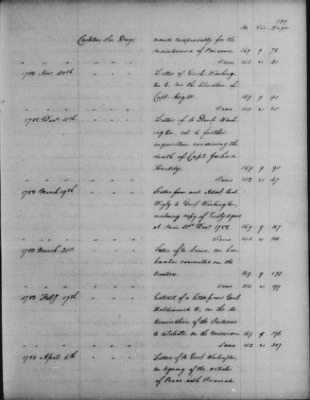 189
No. Vol. Page
Carleton, Sir Guy
made reciprocally for the
maintenance of Prisoners 169 9 76
" " " Same 152 11 21
1782 Nov. 20th " " Letter of Genl. Washing-
ton to, on the liberation of
Capt. Asgill 169 9 90
" " " Same 152 11 65
1782 Decr. 11th " " Letter of to Genl. Wash-
ington, rel. to further
inquisition concerning the
death of Capt. Joshua
Huddy 169 9 91
" " " Same 152 11 67
1783 March 19th " " Letter from and Adml. Card
Digby to Genl. Washington,
enclosing copy of Treaty signed
at Paris Decr. 1782 169 9 117
" " " Same 152 11
1783 March 21st " " Letter of to Same, on
committed on the
169 9
" " " Same 152 11 199
1783 Feby. 17th " " Extract of a letter from Genl.
Haldimand to, on the de-
termination of the Indians
to retaliate on the Americans 169 9 196
" " " Same 152 11 207
1783 April 6th " " Letter of to Genl. Washington,
on signing of the articles
of Peace with France